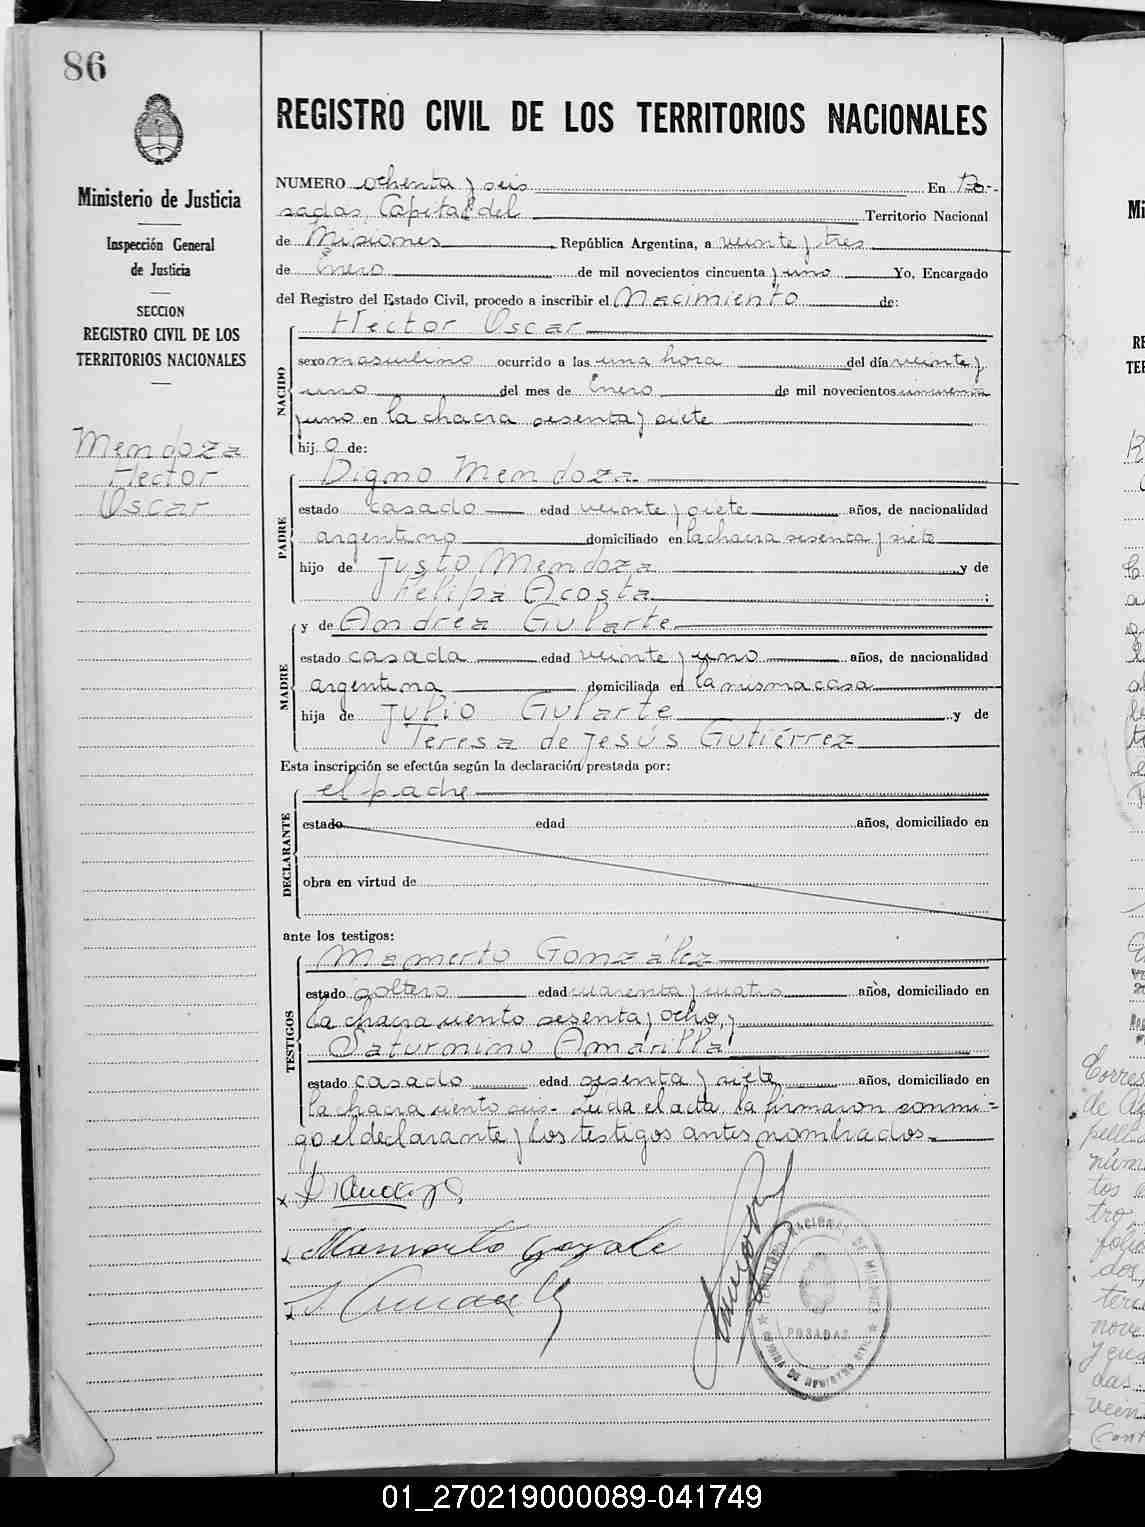 86
Ministerio de Justicia
Inspección General
de Justicia
SECCION
REGISTRO CIVIL DE LOS
TERRITORIOS NACIONALES
Mendoza
Hector
Oscar
REGISTRO CIVIL DE LOS TERRITORIOS NACIONALES
NUMERO ochenta y seis En Po-
sadas, Capital del Territorio Nacional
de Misiones República Argentina, a veinte y tres
de Enero de mil novecientos cincuenta y uno Yo, Encargado
del Registro del Estado Civil, procedo a inscribir el Nacimiento de:
NACIDO
Hector Oscar
sexo masculino ocurrido a las una hora del día veinte y
uno del mes de Enero de mil novecientos cincuenta
y uno en la chacra sesenta y siete
hij o de:
PADRE
Digno Mendoza
estado casado edad veinte y siete años, de nacionalidad
argentino domiciliado en la chacra sesenta y siete
hijo de Justo Mendoza y de
Felipa Acosta ;
MADRE
y de Andrea Gularte
estado casada edad veinte y uno años, de nacionalidad
argentina domiciliada en la misma casa
hija de Julio Gularte y de
Teresa de Jesús Gutiérrez
Esta inscripción se efectúa según la declaración prestada por:
DECLARANTE
el padre
estado edad años, domiciliado en
obra en virtud de
ante los testigos:
TESTIGOS
Mamerto González
estado soltero edad cuarenta y cuatro años, domiciliado en
la chacra ciento sesenta y ocho, y
Saturnino Amarilla
estado casado edad sesenta y siete años, domiciliado en
la chacra ciento seis. Leida el acta, la firmaron conmi=
go el declarante y los testigos antes nombrados.
Mamerto Gonzale
POSADAS
01_270219000089-041749